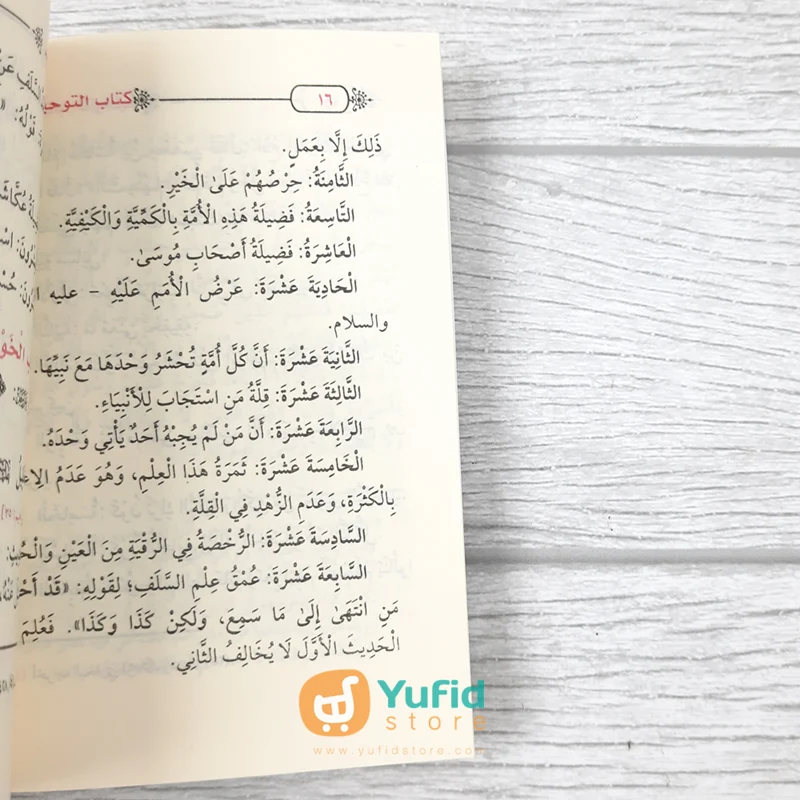 كتاب التوحيد
١٦
ذَلِكَ إِلَّا بِعَمَلٍ.
الثَّامِنَةُ: حِرْصُهُمْ عَلَى الْخَيْرِ.
التَّاسِعَةُ: فَضِيلَةُ هَذِهِ الْأُمَّةِ بِالْكَمِّيَّةِ وَالْكَيْفِيَّةِ.
الْعَاشِرَةُ: فَضِيلَةُ أَصْحَابِ مُوسَىٰ.
الْحَادِيَةَ عَشْرَةَ: عَرْضُ الْأُمَمِ عَلَيْهِ – عليه
والسلام.
الثَّانِيَةَ عَشْرَةَ: أَنَّ كُلَّ أُمَّةٍ تُحْشَرُ وَحْدَهَا مَعَ نَبِيِّهَا.
الثَّالِثَةَ عَشْرَةَ: قِلَّةُ مَنِ اسْتَجَابَ لِلْأَنْبِيَاءِ.
الرَّابِعَةَ عَشْرَةَ: أَنَّ مَنْ لَمْ يُجِبْهُ أَحَدٌ يَأْتِي وَحْدَهُ.
الْخَامِسَةَ عَشْرَةَ: ثَمَرَةُ هَذَا الْعِلْمِ، وَهُوَ عَدَمُ
بِالْكَثْرَةِ، وَعَدَمِ الزُّهْدِ فِي الْقِلَّةِ.
السَّادِسَةَ عَشْرَةَ: الرُّخْصَةُ فِي الرُّقْيَةِ مِنَ الْعَيْنِ وَالْحُمَةِ.
السَّابِعَةَ عَشْرَةَ: عُمْقُ عِلْمِ السَّلَفِ؛ لِقَوْلِهِ: «قَدْ
مَنِ انْتَهَىٰ إِلَىٰ مَا سَمِعَ، وَلَكِنْ كَذَا وَكَذَا». فَعُلِمَ
الْحَدِيثَ الْأَوَّلَ لَا يُخَالِفُ الثَّانِي.
Yufid
store
www.yufidstore.com